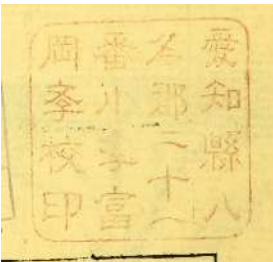 愛知縣八
名郡二十一
番小學富
岡孝校印